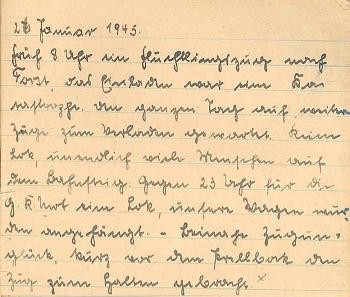 26 Januar 1945.
Früh 8 Uhr ein Flüchtlingszug nach
Forst, das Einladen war eine Ka
tastrophe. Den ganzen Tag auf weitere
Züge zum Verladen gewartet. Keine
Lok, unendlich viele Menschen auf
dem Bahnsteig. Gegen 23 Uhr für die
eine Lok, unsere Wagen wur
den angehängt. - Beinahe Zugun=
glück, kurz vor dem Prellbock den
Zug zum Halten gebracht. x